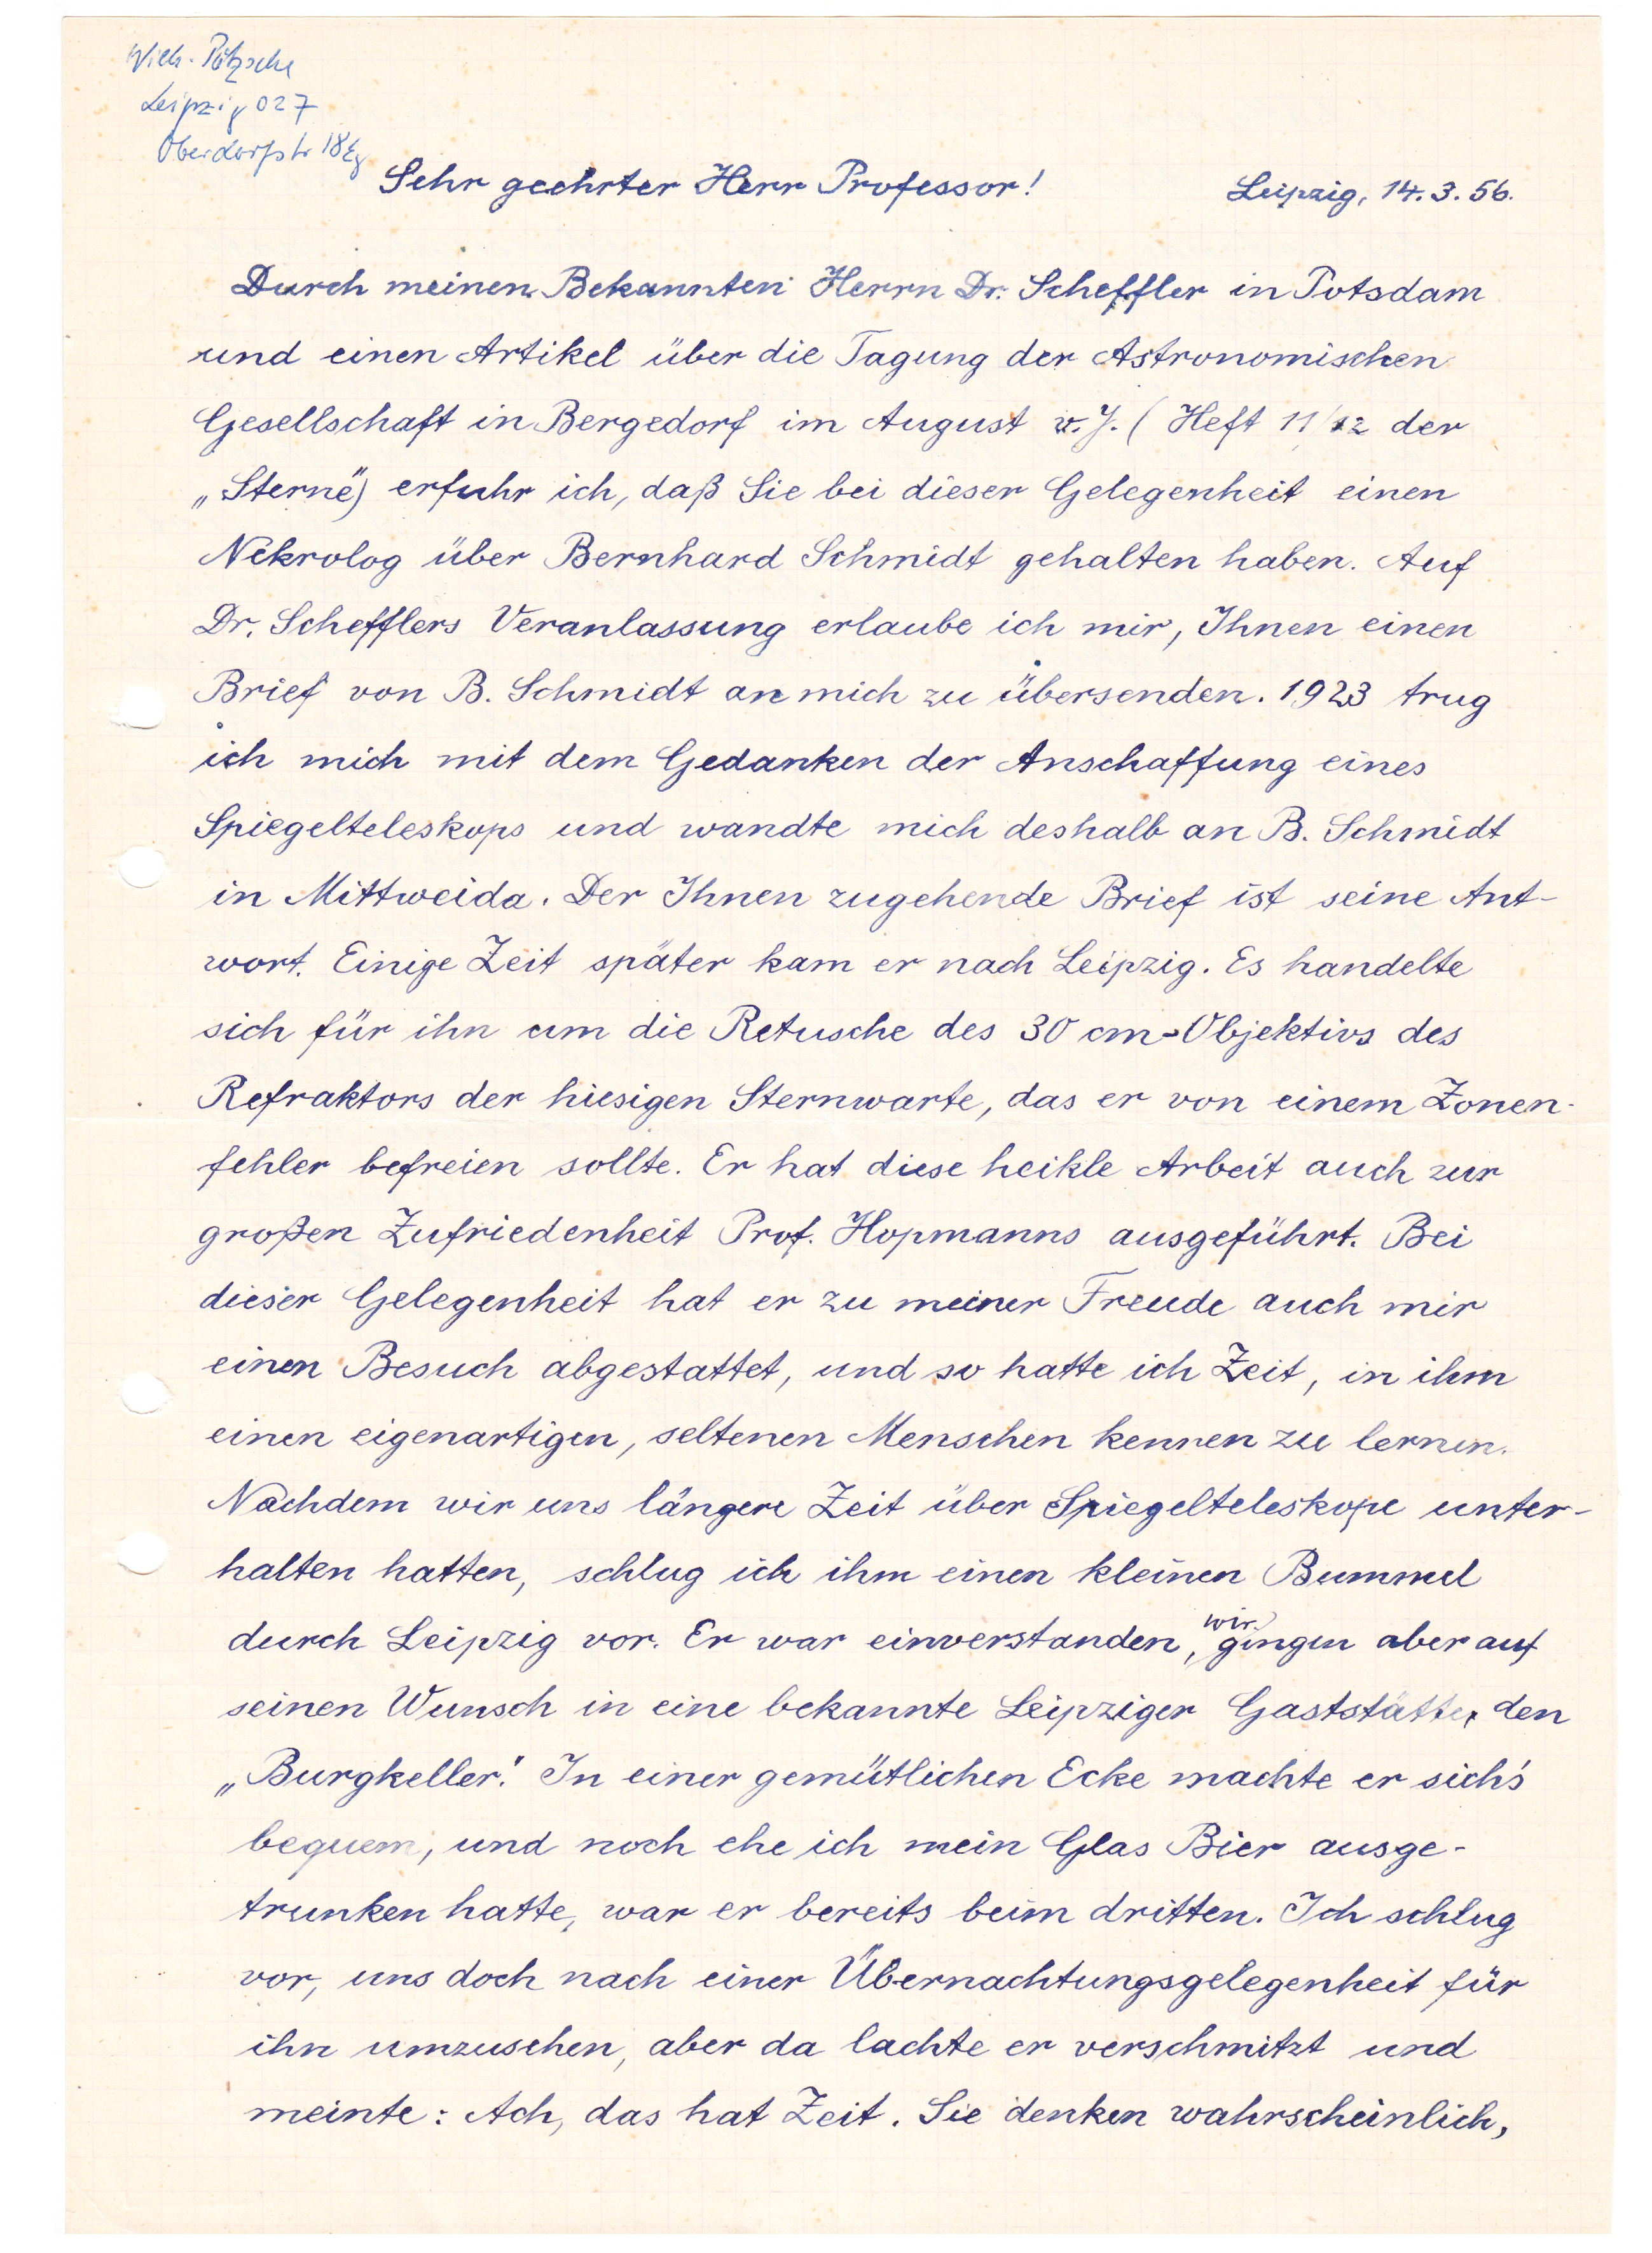 Wilh. Pötzsche
Leipzig O27
Oberdorfstr 18
Sehr geehrter Herr Professor!
Leipzig, 14.3.56.
Durch meinen Bekannten Herrn Dr. Scheffler in Potsdam
und einen Artikel über die Tagung der Astronomischen
Gesellschaft in Bergedorf im August v.J. (Heft 11/12 der
„Sterne") erfuhr ich, daß Sie bei dieser Gelegenheit einen
Nekrolog über Bernhard Schmidt gehalten haben. Auf
Dr. Schefflers Veranlassung erlaube ich mir, Ihnen einen
Brief von B. Schmidt an mich zu übersenden. 1923 trug
ich mich mit dem Gedanken der Anschaffung eines
Spiegelteleskops und wandte mich deshalb an B. Schmidt
in Mittweida. Der Ihnen zugehende Brief ist seine Ant-
wort. Einige Zeit später kam er nach Leipzig. Es handelte
sich für ihn um die Retusche des 30 cm-Objektivs des
Refraktors der hiesigen Sternwarte, das er von einem Zonen-
fehler befreien sollte. Er hat diese heikle Arbeit auch zur
großen Zufriedenheit Prof. Hopmanns ausgeführt. Bei
dieser Gelegenheit hat er zu meiner Freude auch mir
einen Besuch abgestattet, und so hatte ich Zeit, in ihm
einen eigenartigen, seltenen Menschen kennen zu lernen.
Nachdem wir uns längere Zeit über Spiegelteleskope unter-
halten hatten, schlug ich ihm einen kleinen Bummel
durch Leipzig vor. Er war einverstanden, wir gingen aber auf
seinen Wunsch in eine bekannte Leipziger Gaststätte, den
„Burgkeller". In einer gemütlichen Ecke machte er sich's
bequem, und noch ehe ich mein Glas Bier ausge-
trunken hatte, war er bereits beim dritten. Ich schlug
vor, uns doch nach einer Übernachtungsgelegenheit für
ihn umzusehen, aber da lachte er verschmitzt und
meinte: Ach, das hat Zeit. Sie denken wahrscheinlich,